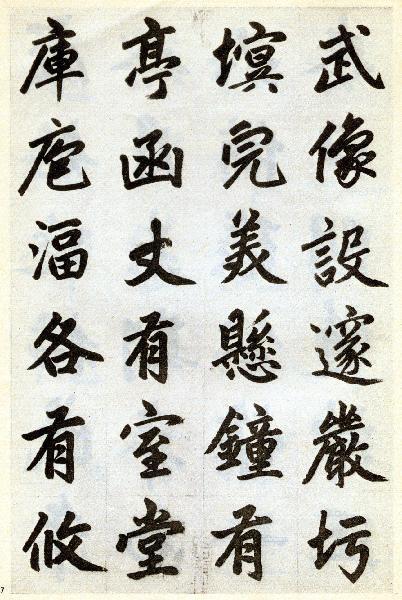 武像設邃嚴圬
塓完美懸鐘有
亭函丈有室堂
庫庖湢各有攸
7